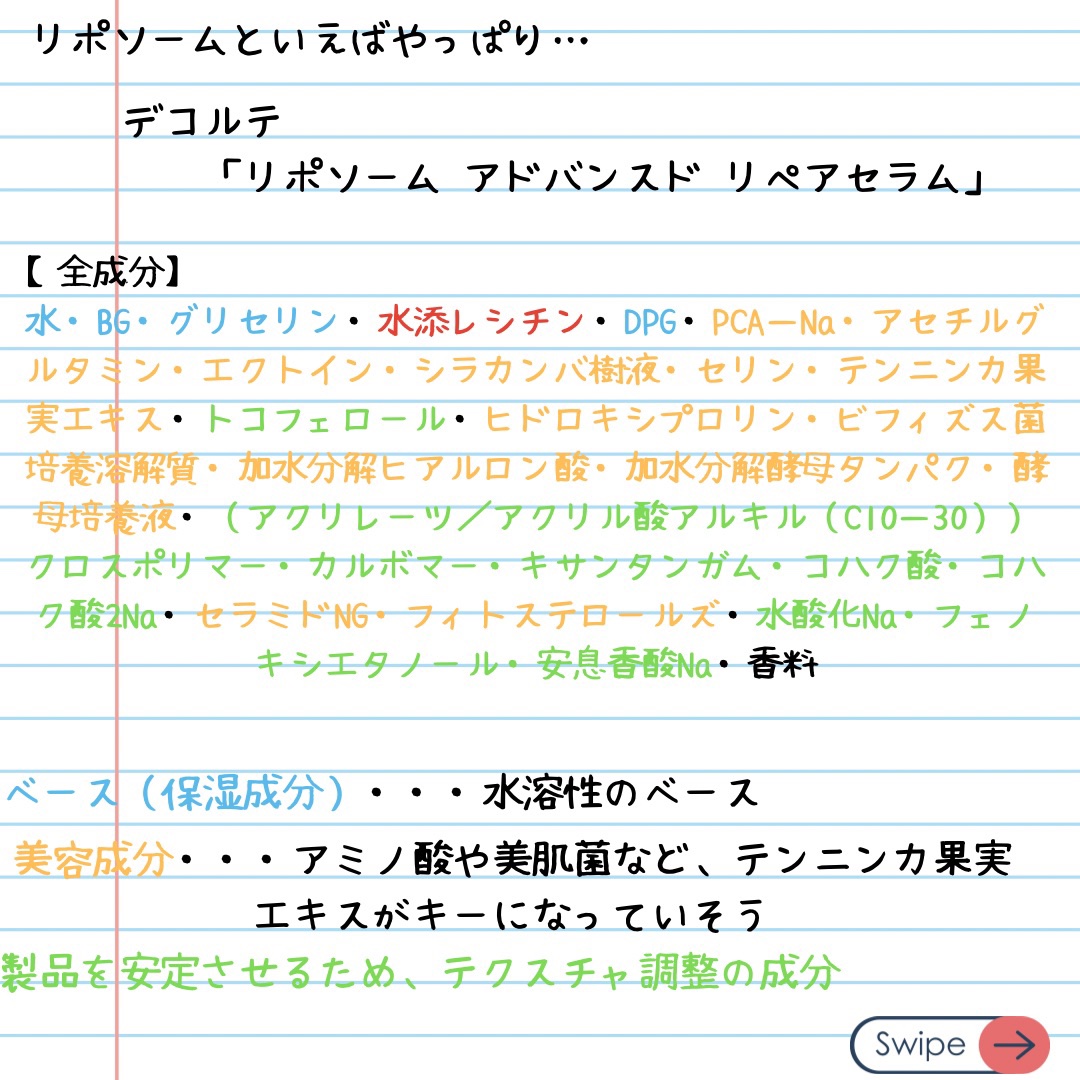 リポソームといえばやっぱり…
デコルテ
「リポソーム アドバンスド リペアセラム」
【 全成分】
水・BG・グリセリン・水添レシチン・DPG・PCA－Na・アセチルグ
ルタミン・エクトイン・シラカンバ樹液・セリン・テンニンカ果
実エキス・トコフェロール・ヒドロキシプロリン・ビフィズス菌
培養溶解質・加水分解ヒアルロン酸・加水分解酵母タンパク・酵
母培養液・（アクリレーツ／アクリル酸アルキル（C10－30））
クロスポリマー・カルボマー・キサンタンガム・コハク酸・コハ
ク酸2Na・セラミドNG・フィトステロールズ・水酸化Na・フェノ
キシエタノール・安息香酸Na・香料
ベース（保湿成分）・・・水溶性のベース
美容成分・・・アミノ酸や美肌菌など、テンニンカ果実
エキスがキーになっていそう
製品を安定させるため、テクスチャ調整の成分
Swipe